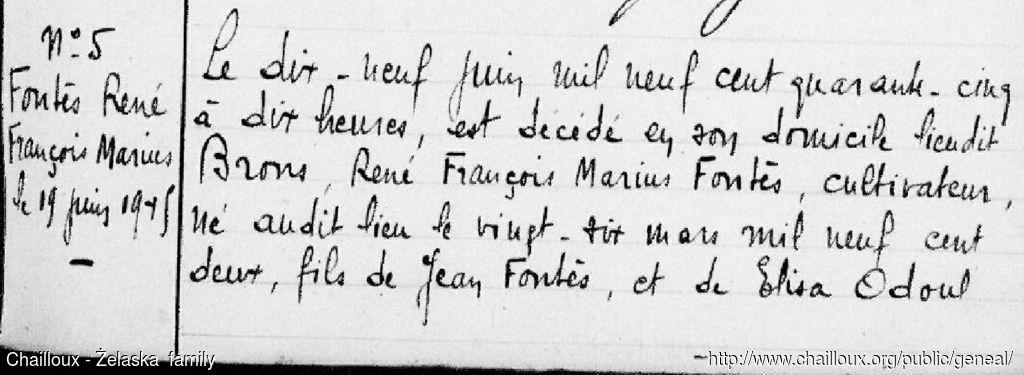 N° 5
Fontès René
François Marius
le 19 juin 1945
Le dix-neuf juin mil neuf cent quarante-cinq
à dix heures, est décédé en son domicile lieudit
Brons, René François Marius Fontès, cultivateur,
né audit lieu le vingt-six mars mil neuf cent
deux, fils de Jean Fontès, et de Elisa Odoul
Chailloux - Želaska family
http://www.chailloux.org/public/geneal/